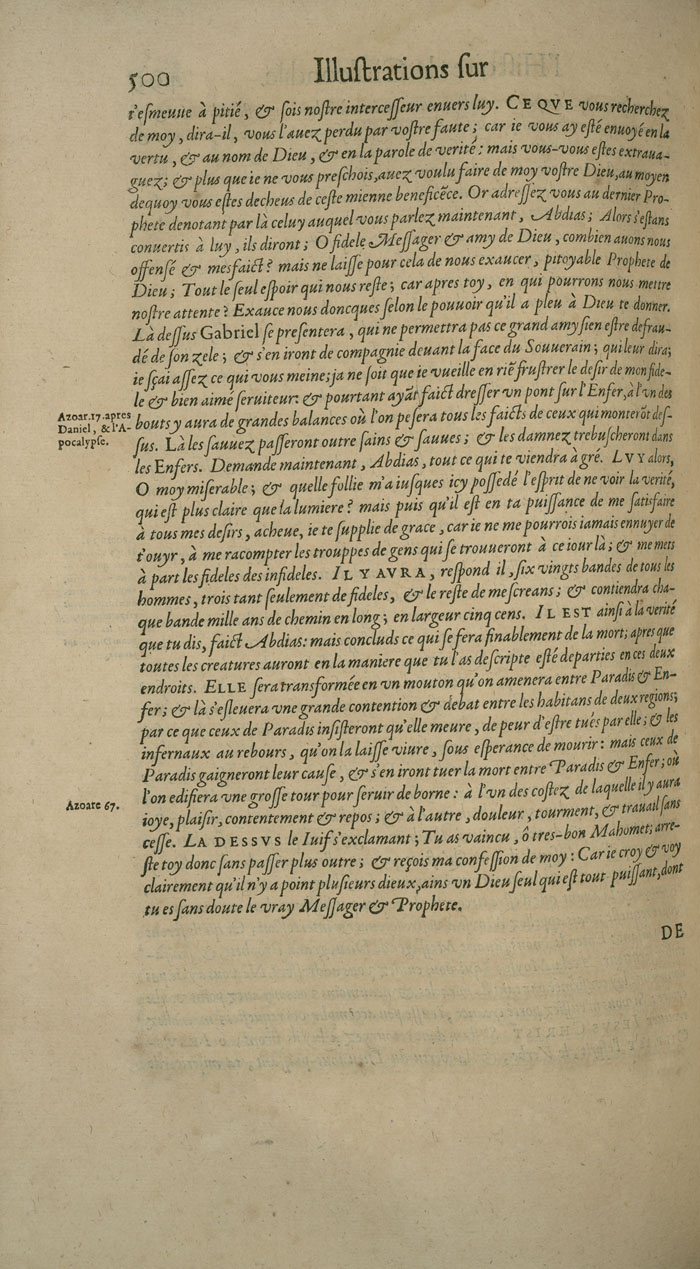 500
Illuſtrations ſur
t'eſmeuue à pitié, & ſois noſtre interceſſeur enuers luy. CE QVE vous recherchez
de moy, dira-il, vous l'auez perdu par voſtre faute; car ie vous ay eſté enuoyé en la
vertu, & au nom de Dieu, & en la parole de verité: mais vous-vous eſtes extraua-
guez; & plus que ie ne vous preſchois, auez voulu faire de moy voſtre Dieu, au moyen
dequoy vous eſtes decheus de ceſte mienne beneficẽce. Or adreſſez vous au dernier Pro-
phete denotant par là celuy auquel vous parlez maintenant, Abdias; Alors s'eſtans
conuertis à luy, ils diront; O fidele Meſſager & amy de Dieu, combien auons nous
offenſé & mesfaict? mais ne laiſſe pour cela de nous exaucer, pitoyable Prophete de
Dieu; Tout le ſeul eſpoir qui nous reſte; car apres toy, en qui pourrons nous mettre
noſtre attente? Exauce nous doncques ſelon le pouuoir qu'il a pleu à Dieu te donner.
Là deſſus Gabriel ſe preſentera, qui ne permettra pas ce grand amy ſien eſtre defrau-
dé de ſon zele; & s'en iront de compagnie deuant la face du Souuerain; qui leur dira;
ie ſçai aſſez ce qui vous meine; ja ne ſoit que ie vueille en riẽ fruſtrer le deſir de mon fide-
le & bien aimé ſeruiteur: & pourtant ayãt faict dreſſer vn pont ſur l'Enfer, à l'vn des
bouts y aura de grandes balances où l'on peſera tous les faicts de ceux qui monterõt deſ-
ſus. Là les ſauuez paſſeront outre ſains & ſauues; & les damnez trebuſcheront dans
les Enfers. Demande maintenant, Abdias, tout ce qui te viendra à gré. LVY alors,
O moy miſerable; & quelle follie m'a iuſques icy poſſedé l'eſprit de ne voir la verité,
qui eſt plus claire que la lumiere? mais puis qu'il eſt en ta puiſſance de me ſatisfaire
à tous mes deſirs, acheue, ie te ſupplie de grace, car ie ne me pourrois iamais ennuyer de
t'ouyr, à me racompter les trouppes de gens qui ſe trouueront à ce iour là; & me mets
à part les fideles des infideles. IL Y AVRA, reſpond il, ſix vingts bandes de tous les
hommes, trois tant ſeulement de fideles, & le reſte de meſcreans; & contiendra cha-
que bande mille ans de chemin en long; en largeur cinq cens. IL EST ainſi à la verité
que tu dis, faict Abdias: mais concluds ce qui ſe fera finablement de la mort; apres que
toutes les creatures auront en la maniere que tu l'as deſcripte eſté departies en ces deux
endroits. ELLE ſera transformée en vn mouton qu'on amenera entre Paradis & En-
fer; & là s'eſleuera vne grande contention & debat entre les habitans de deux regions;
par ce que ceux de Paradis inſiſteront qu'elle meure, de peur d'eſtre tués par elle; & les
infernaux au rebours, qu'on la laiſſe viure, ſous eſperance de mourir: mais ceux de
Paradis gaigneront leur cauſe, & s'en iront tuer la mort entre Paradis & Enfer; où
l'on edifiera vne groſſe tour pour ſeruir de borne: à l'vn des coſtez de laquelle il y aura
ioye, plaiſir, contentement & repos; & à l'autre, douleur, tourment, & trauail ſans
ceſſe. LA DESSVS le Iuif s'exclamant; Tu as vaincu, ô tres-bon Mahomet; arre-
ſte toy donc ſans paſſer plus outre; & reçois ma confeſſion de moy: Car ie croy & voy
clairement qu'il n'y a point pluſieurs dieux, ains vn Dieu ſeul qui eſt tout puiſſant, dont
tu es ſans doute le vray Meſſager & Prophete.
DE
Azoar. 17. apres
Daniel, & l'A-
pocalypſe.
Azoare 67.